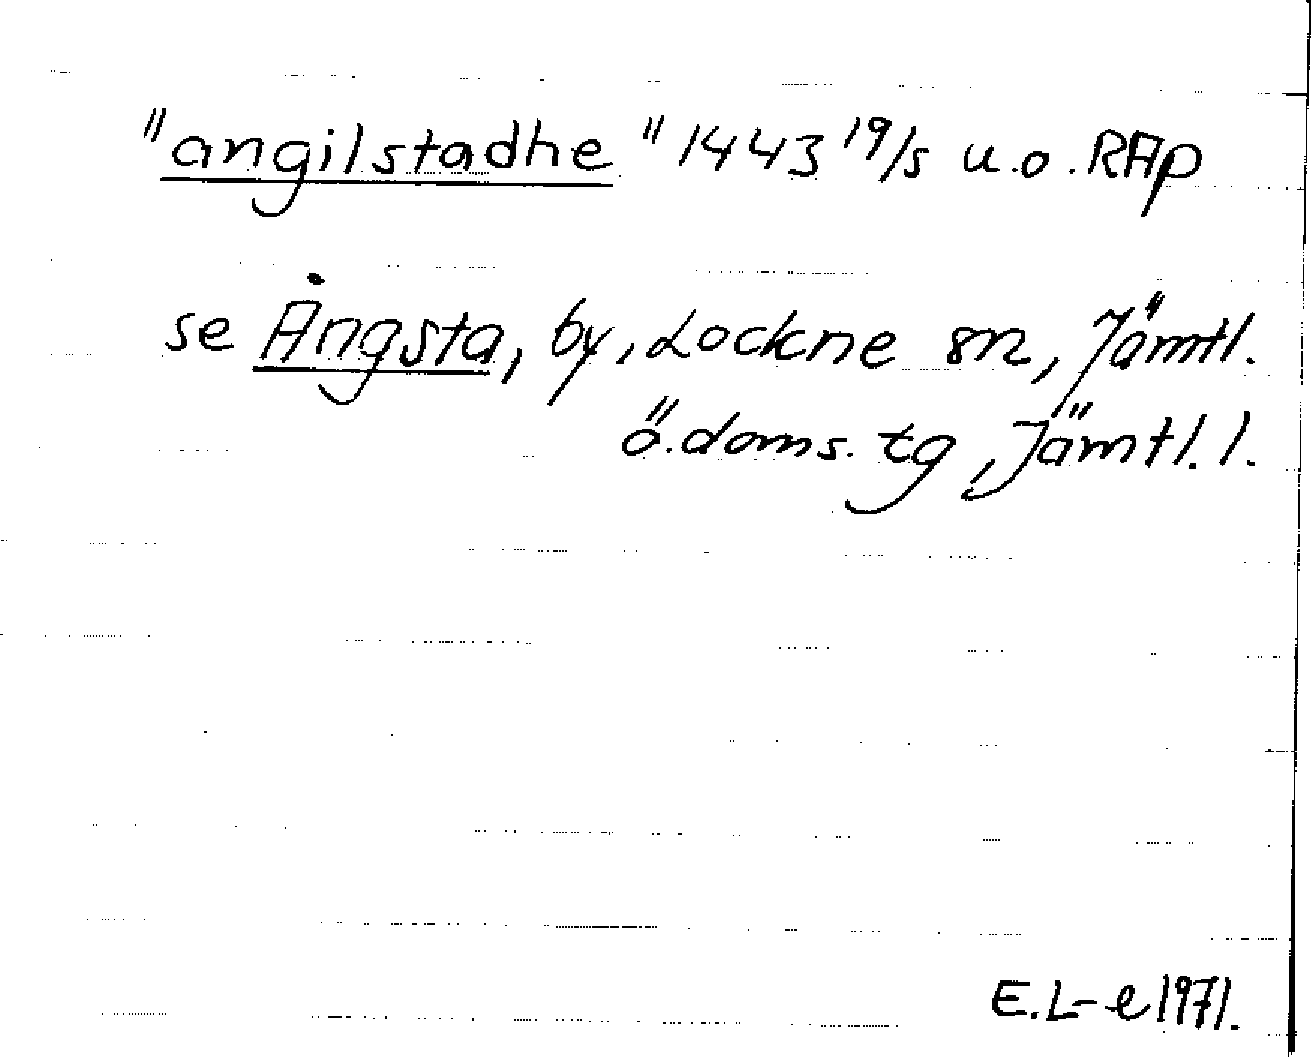 "angilstadhe" 1443 19/5 u.o. RAp
se Ångsta, by, Lockne sn, Jämtl.
ö. doms. tg, Jämtl. l.
E.L-e 1971.